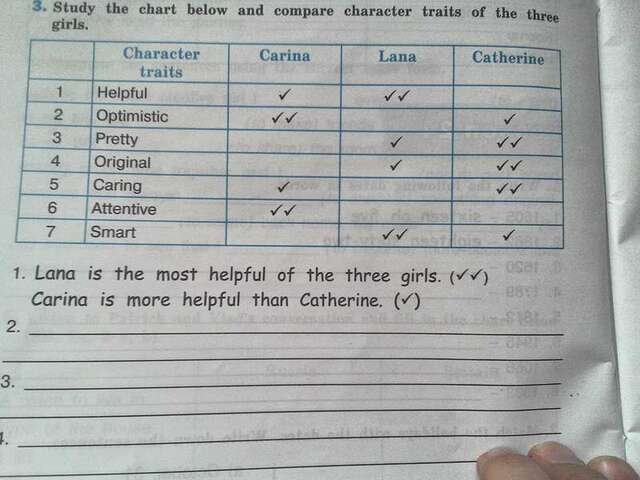 3. Study the chart below and compare character traits of the three
girls.
Character traits Carina Lana Catherine
1 Helpful ✓ ✓✓
2 Optimistic ✓✓ ✓
3 Pretty ✓ ✓✓
4 Original ✓ ✓✓
5 Caring ✓ ✓✓
6 Attentive ✓✓
7 Smart ✓✓ ✓
1. Lana is the most helpful of the three girls. (✓✓)
Carina is more helpful than Catherine. (✓)
2.
3.
4.